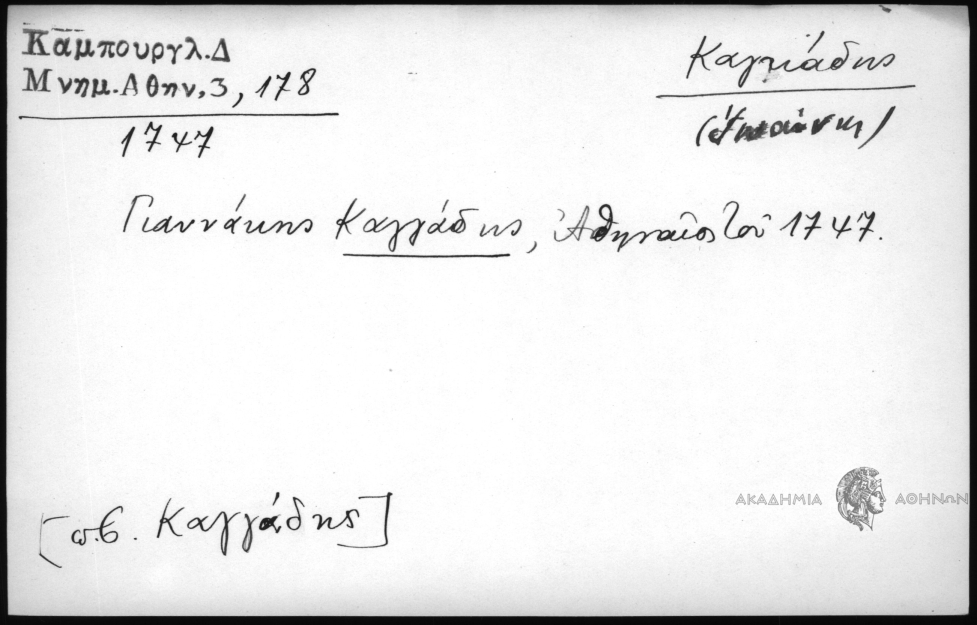 Καμπουργλ.Δ
Μνημ.Αθην.3, 178
1747
Καγκάδης
Γιαννάκης Καγγάδης, Ἀθηναῖος τοῦ 1747.
[π.β. Καγγάδης]
ΑΚΑΔΗΜΙΑ ΑΘΗΝΩΝ